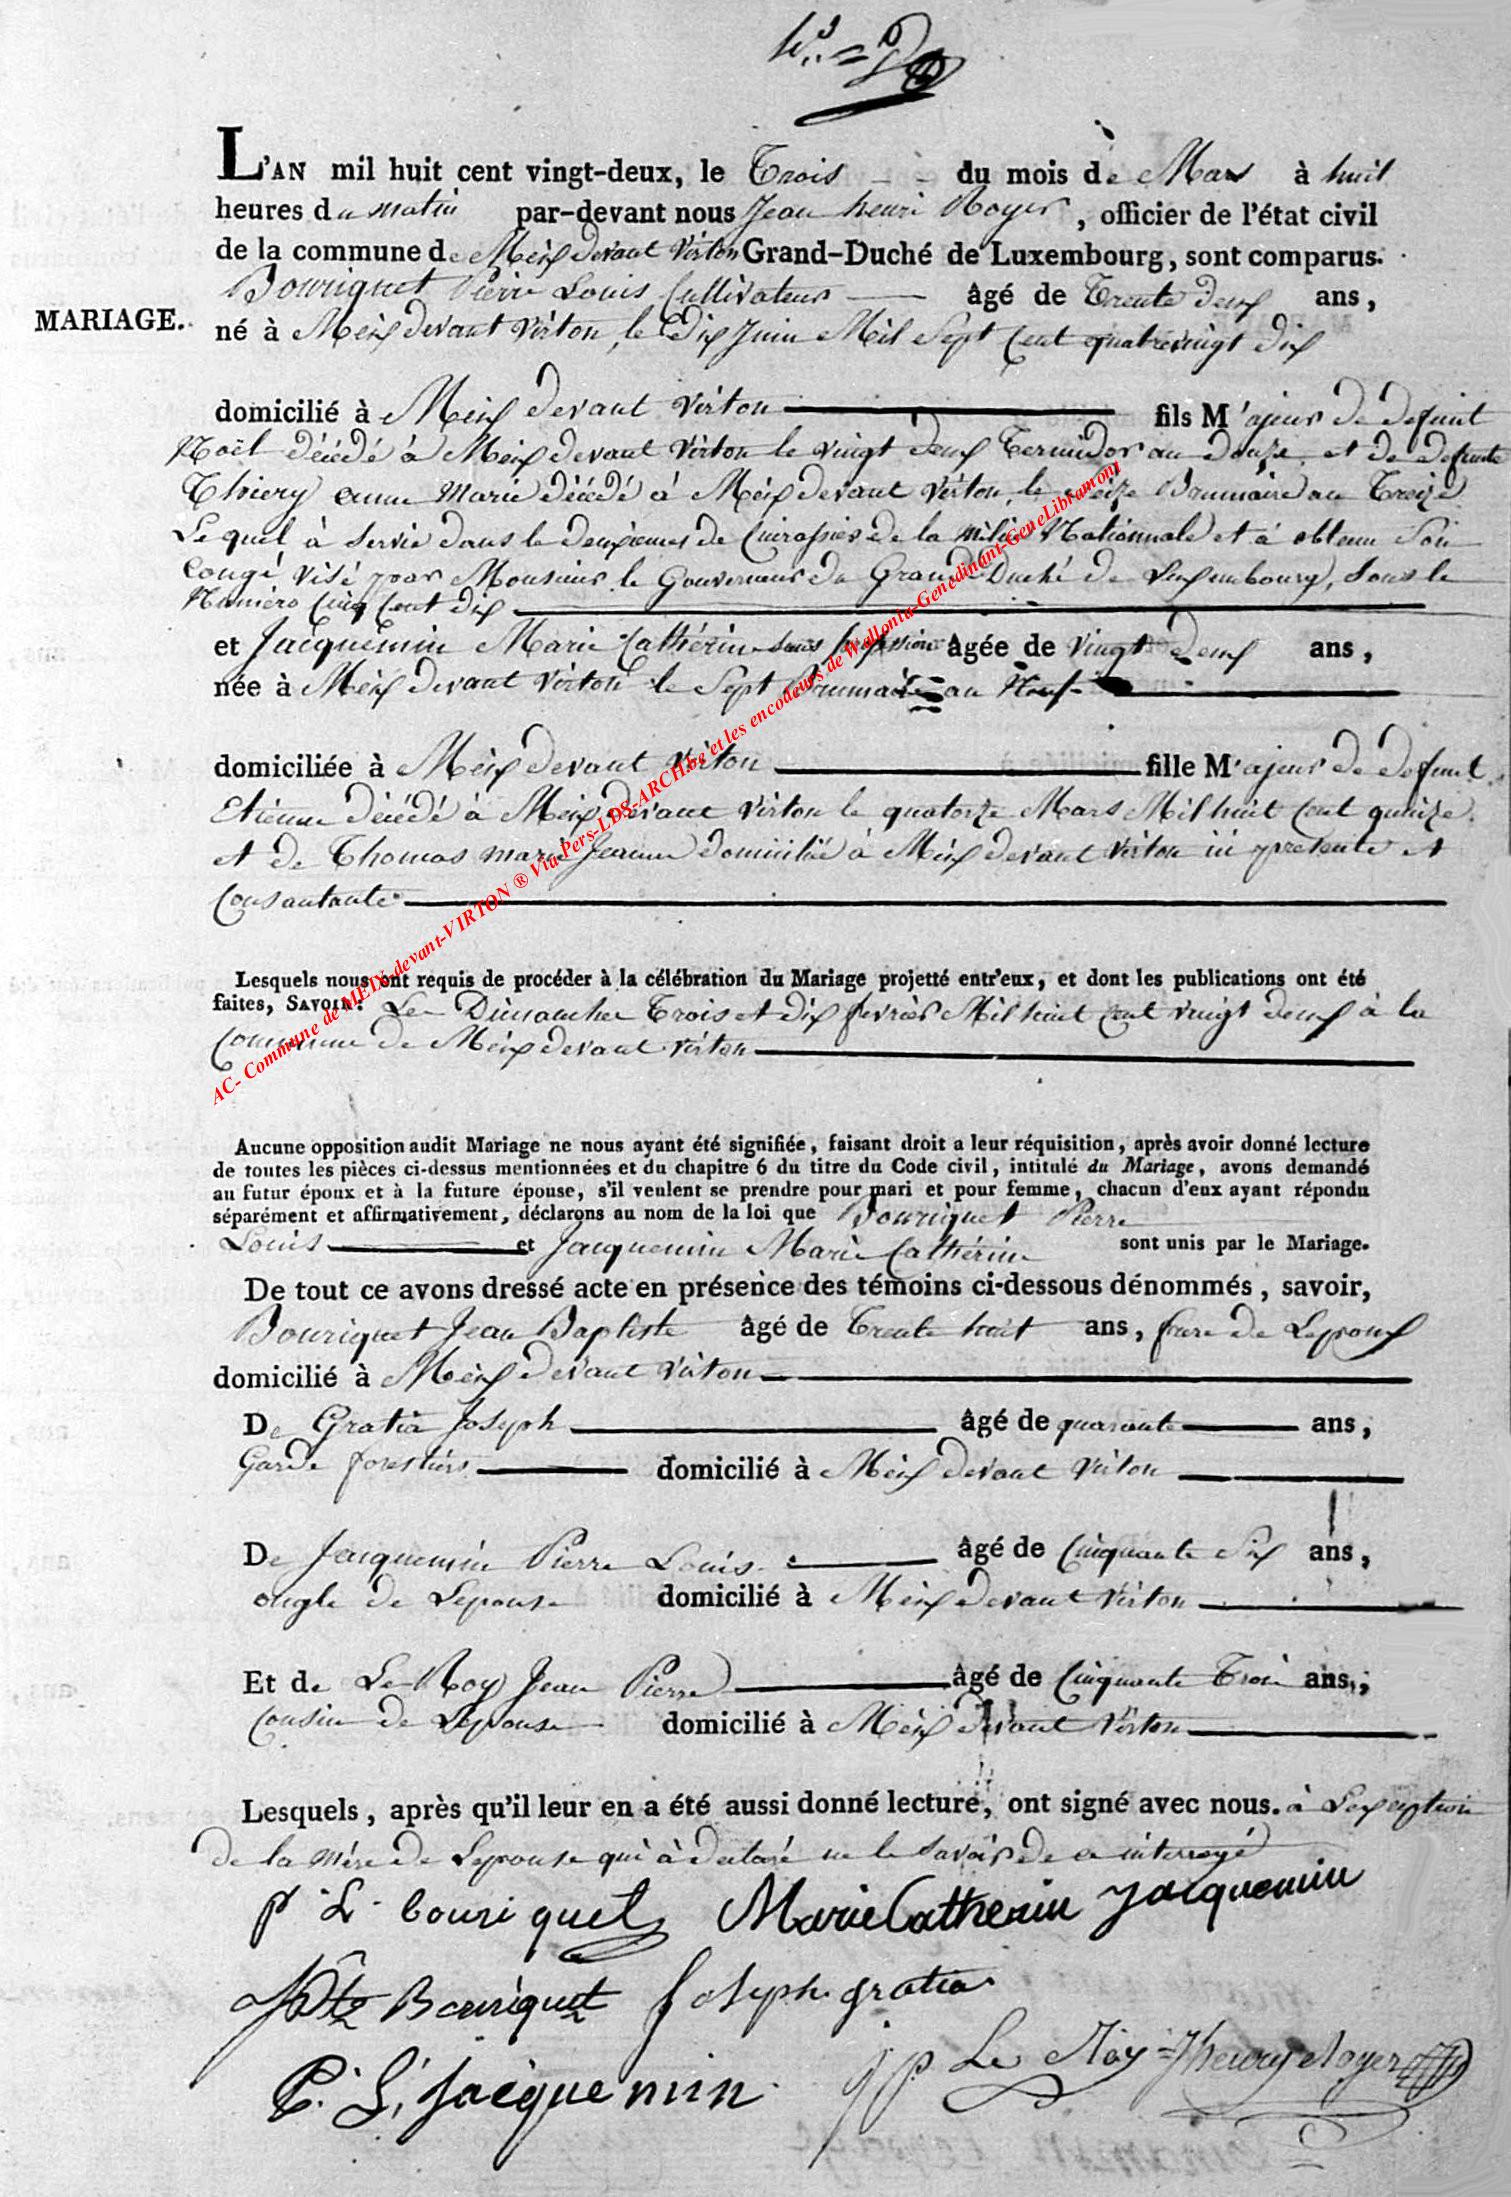 L'AN mil huit cent vingt-deux, le Trois du mois de Mars à huit
heures du matin par-devant nous Jean henri Royer, officier de l'état civil
de la commune de Meix devant Virton Grand-Duché de Luxembourg, sont comparus.
Bouriquet Pierre Louis Cultivateur âgé de Trente deux ans,
MARIAGE.
né à Meix devant Virton, le Dix Juin Mil Sept Cent quatrevingt dix
domicilié à Meix devant Virton fils M'ajeur de defunt
Noël décédé à Meix devant Virton le vingt deux Termidor an douze et de defunte
Thiery anne Marie décédé à Meix devant Virton le Brumaire an Treize
Le quel à servie dans le deuxiemes de Cuirassier de la milice Nationnale et à obtenu Son
Congé visé par Monsieur le Gouverneur du Grand Duché de Luxembourg, sous le
Numéro Cinq Cent dix
et Jacquemin Marie Cathérine sans profession âgée de vingt deux ans,
née à Meix devant Virton le Sept Brumaire an Neuf
domiciliée à Meix devant Virton fille M'ajeur de defunt
Etienne décédé à Meix devant Virton le quatorze Mars Mil huit Cent quinze
et de Thomas marie Jeanne domicilié à Meix devant Virton ici presente et
Consantante
Lesquels nous ont requis de procéder à la célébration du Mariage projetté entr'eux, et dont les publications ont été
faites, SAVOIR: Les Dimanches Trois et dix fevrier Mil huit Cent vingt deux à la
Commune de Meix devant Virton
Aucune opposition audit Mariage ne nous ayant été signifiée, faisant droit a leur réquisition, après avoir donné lecture
de toutes les pièces ci-dessus mentionnées et du chapitre 6 du titre du Code civil, intitulé du Mariage, avons demandé
au futur époux et à la future épouse, s'il veulent se prendre pour mari et pour femme, chacun d'eux ayant répondu
séparément et affirmativement, déclarons au nom de la loi que Bouriquet Pierre
Louis et Jacquemin Marie Cathérine sont unis par le Mariage.
De tout ce avons dressé acte en présence des témoins ci-dessous dénommés, savoir,
Bouriquet Jean Baptiste âgé de Trente huit ans, frere de Lepoux
domicilié à Meix devant Virton
De Gratia Joseph âgé de quarante ans,
Garde forestiers domicilié à Meix devant Virton
De Jacquemin Pierre Louis âgé de Cinquante Six ans,
ongle de Lepouse domicilié à Meix devant Virton
Et de Le Roy Jean Pierre âgé de Cinquante Trois ans,
Cousin de Lepouse domicilié à Meix devant Virton
Lesquels, après qu'il leur en a été aussi donné lecture, ont signé avec nous. à Lexeption
de la mère de Lepouse qui à declaré ne le savoir de ce interrogé
p L bouriquet Marie Catherin Jacquemin
JBte Bouriquet Joseph gratia
P. L. Jacquemin jp Le Roy Jhenry Royer
AC- Commune de MEIX-devant-VIRTON ® Via-Pers-LDS-ARCH.be et les encodeurs de Wallonia-Genedinant-GeneLibramont